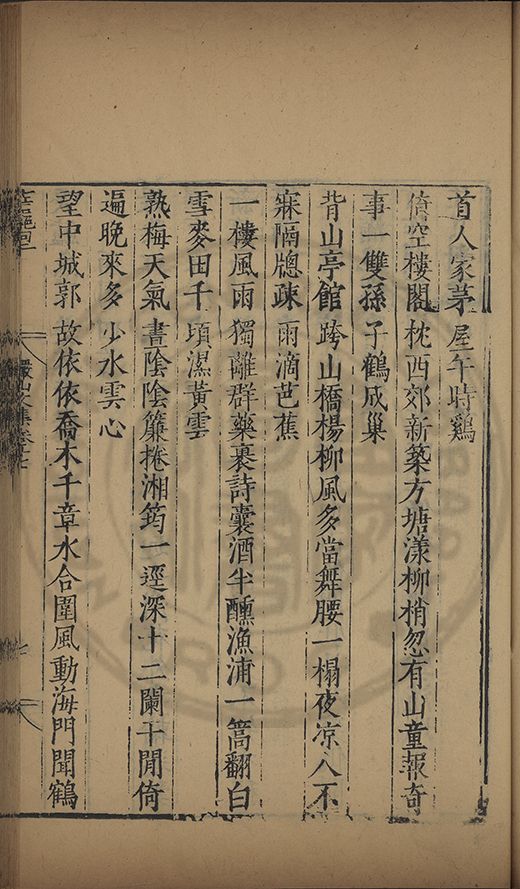 首人家茅屋午時鷄
倚空樓閣枕西郊新築方塘漾柳梢忽有山童報奇
事一雙孫子鶴成巢
背山亭館跨山橋楊柳風多當舞腰一榻夜凉人不
寐隔牕疎雨滴芭蕉
一樓風雨獨離群藥裹詩囊酒半醺漁浦一篙翻白
雪麥田千頃濕黃雲
熟梅天氣晝陰陰簾捲湘筠一逕深十二闌干閒倚
遍晚來多少水雲心
望中城郭故依依喬木千章水合圍風動海門聞鶴